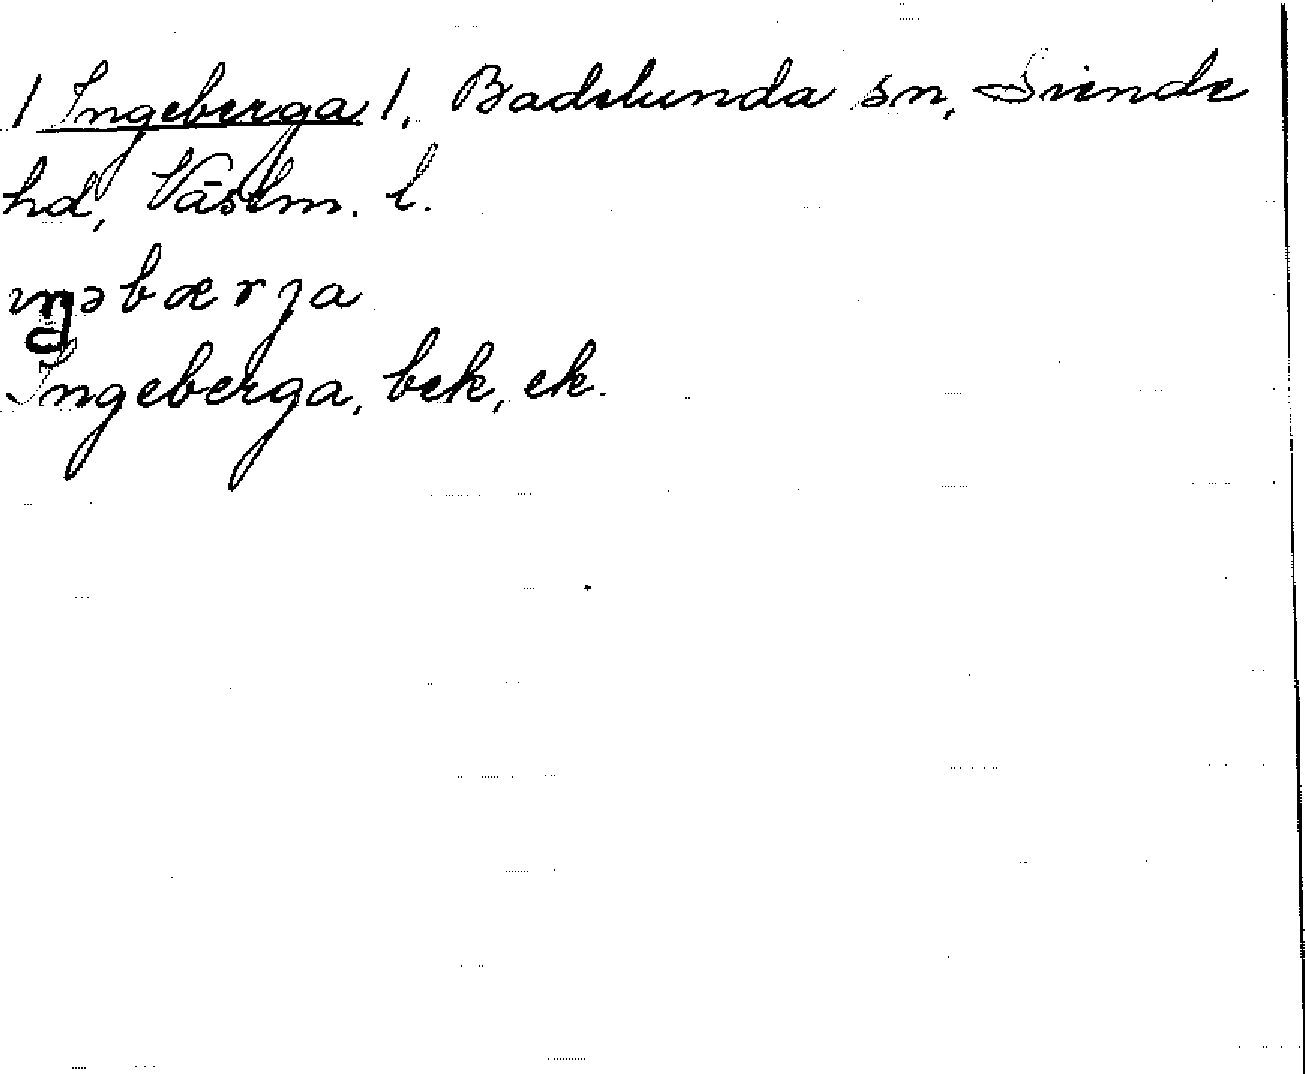 / Ingeberga /, Badelunda sn, Siende
hd, Västm. l.
ıŋəbærja
Ingeberga, bek, ek.